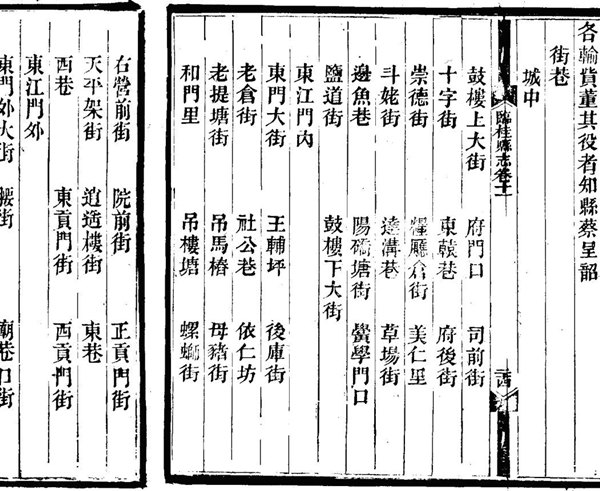 各輸貲董其役者知縣蔡呈韶
街巷
城中
臨桂縣志卷十一
鼓樓上大街 府門口 司前街
十字街 東轅巷 府後街
崇德街 糧廳倉街 美仁里
斗姥街 達溝巷 草場街
邊魚巷 陽磚塘街 黌學門口
鹽道街 鼓樓下大街
東江門內
東門大街 王輔坪 後庫街
老倉街 社公巷 依仁坊
老提塘街 吊馬樁 母豬街
和門里 吊樓塘 螺螄街
右營前街 院前街 正貢門街
天平架街 逍遙樓街 東巷
西巷 東貢門街 西貢門街
東江門外
東門外大街 腰街 廟巷口街